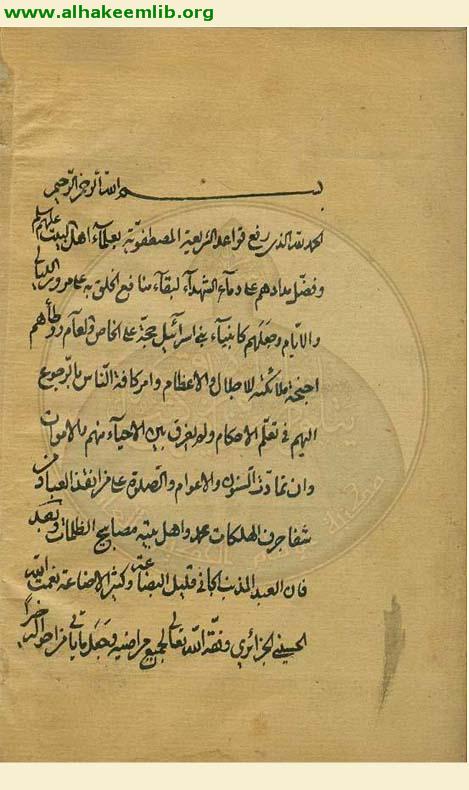 www.alhakeemlib.org
بسم الله الرحمن الرحيم
الحمد لله الذى رفع قواعد الشريعة المصطفوية بعلماء اهل البيت عليهم السلم
وفضل مدادهم على دماء الشهداء لبقاء منافع الخلق به على مرور الليالى
والايام وجعلهم كانبياء بنى اسرائيل حجة على الخاص والعام ووطأهم
اجنحة ملائكته للاجلال والاعظام وامر كافة الناس بالرجوع
اليهم فى تعلم الاحكام ولم يفرق بين الاحياء منهم والاموات
وان تمادت السنون والاعوام والصلوة على من انقذ العباد من
شفا جرف الهلكات محمد واهل بيته مصابيح الظلمات وبعد
فان العبد المذنب الجانى قليل البضاعة وكثير الاضاعة نعمت الله
الحسينى الجزائرى وفقه الله تعالى لجميع مراضيه وجعل ما ياتى من احواله خيراً